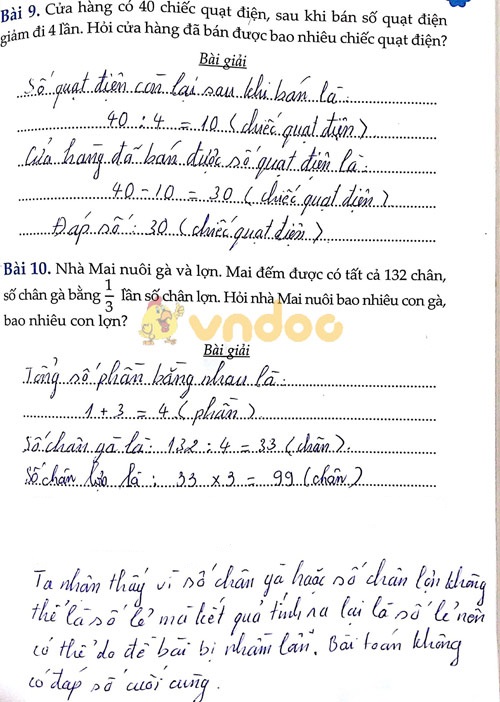 Bài 9. Cửa hàng có 40 chiếc quạt điện, sau khi bán số quạt điện
giảm đi 4 lần. Hỏi cửa hàng đã bán được bao nhiêu chiếc quạt điện?
Bài giải
Số quạt điện còn lại sau khi bán là:
40 : 4 = 10 (chiếc quạt điện)
Cửa hàng đã bán được số quạt điện là:
40 - 10 = 30 (chiếc quạt điện)
Đáp số: 30 (chiếc quạt điện)
Bài 10. Nhà Mai nuôi gà và lợn. Mai đếm được có tất cả 132 chân,
số chân gà bằng 1/3 lần số chân lợn. Hỏi nhà Mai nuôi bao nhiêu con gà,
bao nhiêu con lợn?
vndoc
Bài giải
Tổng số phần bằng nhau là:
1 + 3 = 4 (phần)
Số chân gà là: 132 : 4 = 33 (chân).
Số chân lợn là: 33 x 3 = 99 (chân)
Ta nhận thấy vì số chân gà hoặc số chân lợn không
thể là số lẻ mà kết quả tính ra lại là số lẻ nên
có thể do đề bài bị nhầm lẫn. Bài toán không
có đáp số cuối cùng.